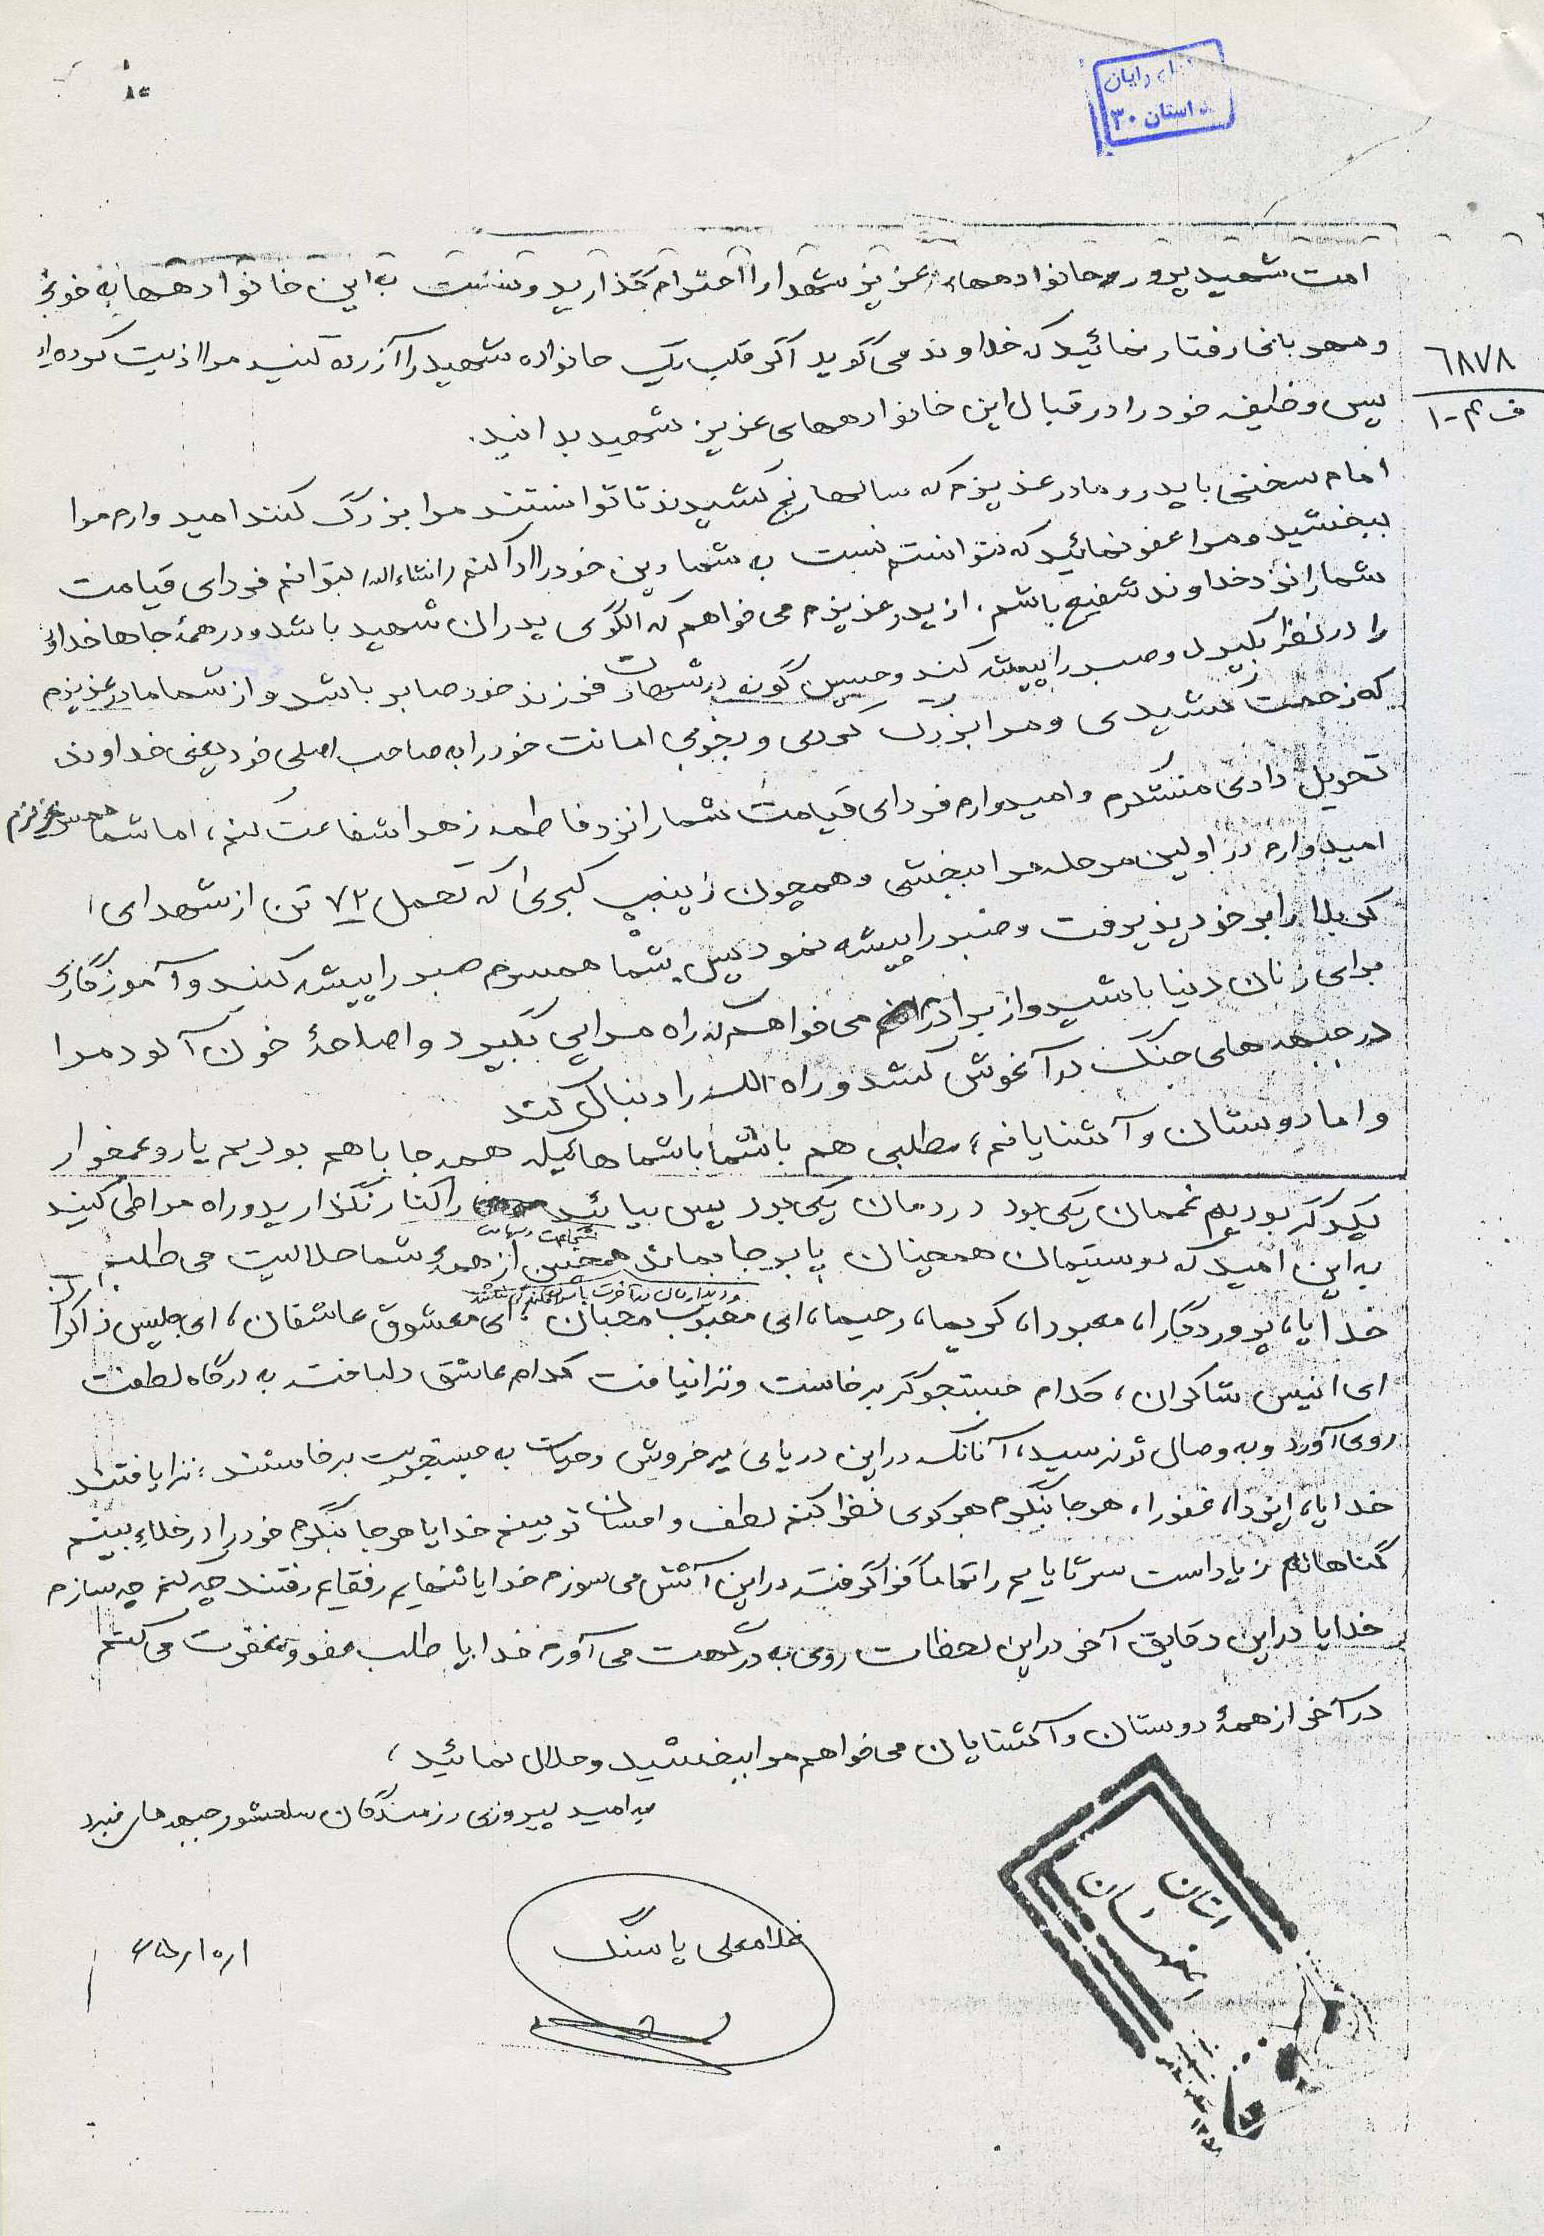 رایان
استان ۳۰
امت شهید پرور خانواده‌های عزیز شهدا را احترام بگذارید و نسبت به این خانواده‌ها به خوبی
و مهربانی رفتار نمائید که خداوند می گوید اگر قلب یک خانواده شهید را آزرده کنید مرا اذیت کرده‌اید
۶۸۷۸
پس وظیفه خود را در قبال این خانواده‌های عزیز شهید بدانید.
اما م سخنی با پدر و مادر عزیزم که سالها رنج کشیدند تا توانستند مرا بزرگ کنند امیدوارم مرا
ببخشید و مرا عفو نمائید که نتوانستم نسبت به شما دین خود را ادا کنم و انشاءالله بتوانم فردای قیامت
شما را نزد خداوند شفیع باشم. از پدر عزیزم می خواهم که الگوی پدران شهید باشد و در همهٔ جاها خدا
را در نظر بگیرد و صبر را پیشه کند و حسین گونه در شهادت فرزند خود صابر باشد و از شما مادر عزیزم
که زحمت کشیدی و مرا بزرگ کردی و بخوبی امانت خود را به صاحب اصلی خود یعنی خداوند
تحویل دادی متشکرم و امیدوارم فردای قیامت شما را نزد فاطمه زهرا شفاعت کنم، اما شما همسر عزیزم
امیدوارم در اولین مرحله مرا ببخشی و همچون زینب کبری که تحمل ۷۲ تن از شهدای
کربلا را بر خود پذیرفت و صبر را پیشه نمود پس شما همسرم صبر را پیشه کنند و آموزگاری
برای زنان دنیا باشید و از برادرانم می خواهم که راه مرا پی بگیرد و اصلحهٔ خون آلود مرا
در جبهه‌های جنگ در آغوش کشد و راه الله را دنبال کند
و اما دوستان و آشنایانم، مطلبی هم با شما با شماهائیکه همه جا با هم بودیم یار و غمخوار
یکدیگر بودیم غممان یکی بود دردمان یکی بود پس بیائید را کنار نگذارید و راه مرا طی کنید
به این امید که دوستیمان همچنان پا بر جا بماند همچنین از همهٔ شما حلالیت می طلبم
خدایا، پروردگارا، معبودا، کریما، رحیما، ای محبوب محبان، ای معشوق عاشقان، ای جلیس ذاکران
ای انیس شاکران، کدام جستجوگر برخاست و ترا نیافت کدام عاشق دلباخته به درگاه لطفت
روی آورد و به وصال تو نرسید، آنانکه در این دریای پر خروش وحیات به جستجویت برخاستند، ترا یافتند
خدایا، ایزدا، غفورا، هر جا بنگرم هر کوی نظر کنم لطف و احسان تو بینم خدایا هر جا بنگرم خود را در خلاء بینم
گناهانم زیاد است سر تا پایم را تماماً فرا گرفته در این آتش می سوزم خدایا تنهایم رفقایم رفتند چه کنم چه سازم
خدایا در این دقایق آخر در این لحظات روی به درگهت می آورم خدایا طلب عفو و مغفرت می کنم
در آخر از همهٔ دوستان و آشنایان می خواهم مرا ببخشید و حلال نمائید،
به امید پیروزی رزمندگان سلحشور جبهه های نبرد
غلامعلی پاسنگ
استان